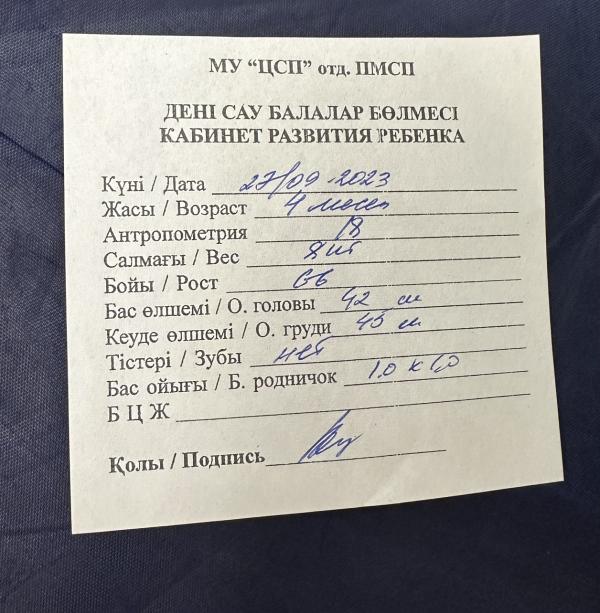 МУ “ЦСП” отд. ПМСП
ДЕНІ САУ БАЛАЛАР БӨЛМЕСІ
КАБИНЕТ РАЗВИТИЯ РЕБЕНКА
Күні / Дата 27/09 2023
Жасы / Возраст 4 месяц
Антропометрия
Салмағы / Вес
Бойы / Рост
Бас өлшемі / О. головы 42 см
Кеуде өлшемі / О. груди 43 см
Тістері / Зубы нет
Бас ойығы / Б. родничок 1.0 х 1,0
Б Ц Ж
Қолы / Подпись